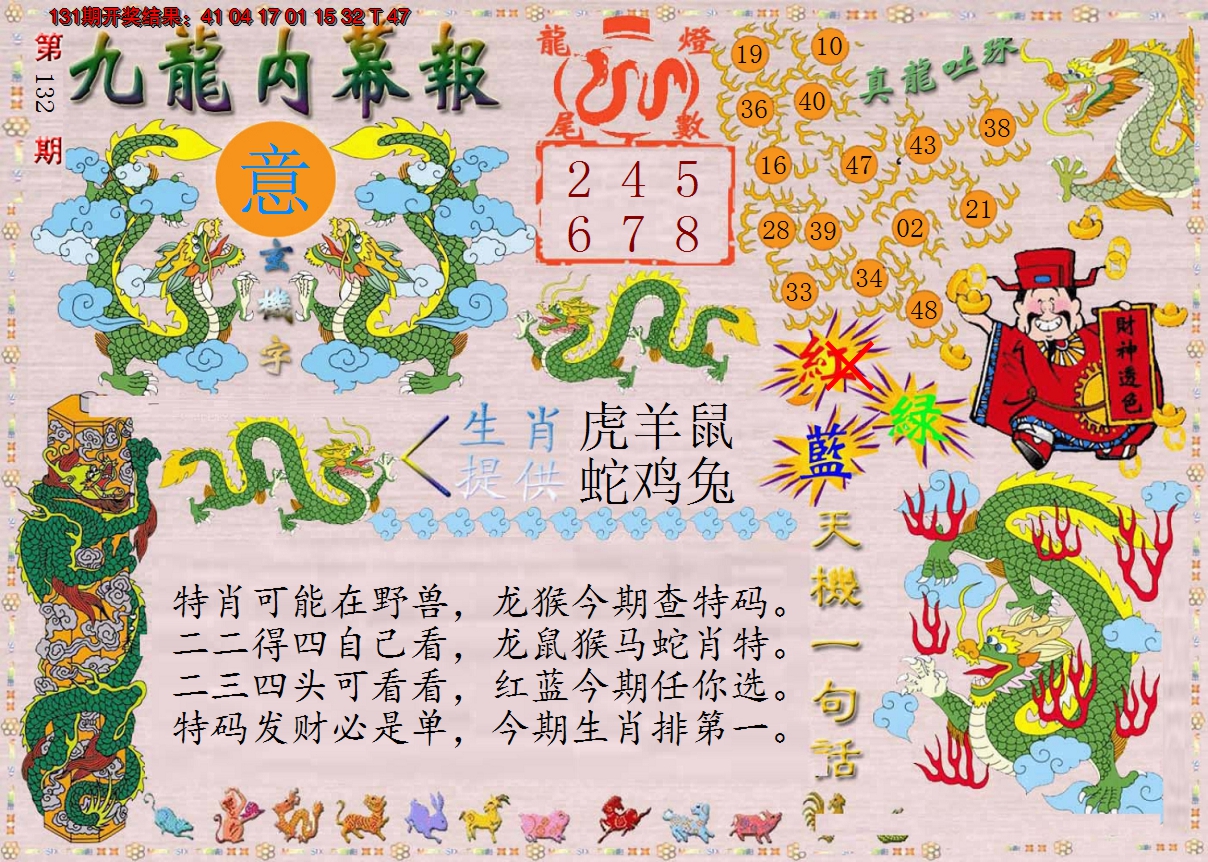 131期开奖结果：41 04 17 01 15 32 T 47
第132期
九龍内幕報
意
玄機字
龍燈
尾數
2 4 5
6 7 8
真龍吐珠
19
10
36
40
43
38
16
47
28
39
02
21
33
34
48
紅
綠
藍
財神透色
生肖
提供
虎羊鼠
蛇鸡兔
特肖可能在野兽，龙猴今期查特码。
二二得四自己看，龙鼠猴马蛇肖特。
二三四头可看看，红蓝今期任你选。
特码发财必是单，今期生肖排第一。
天機一句话